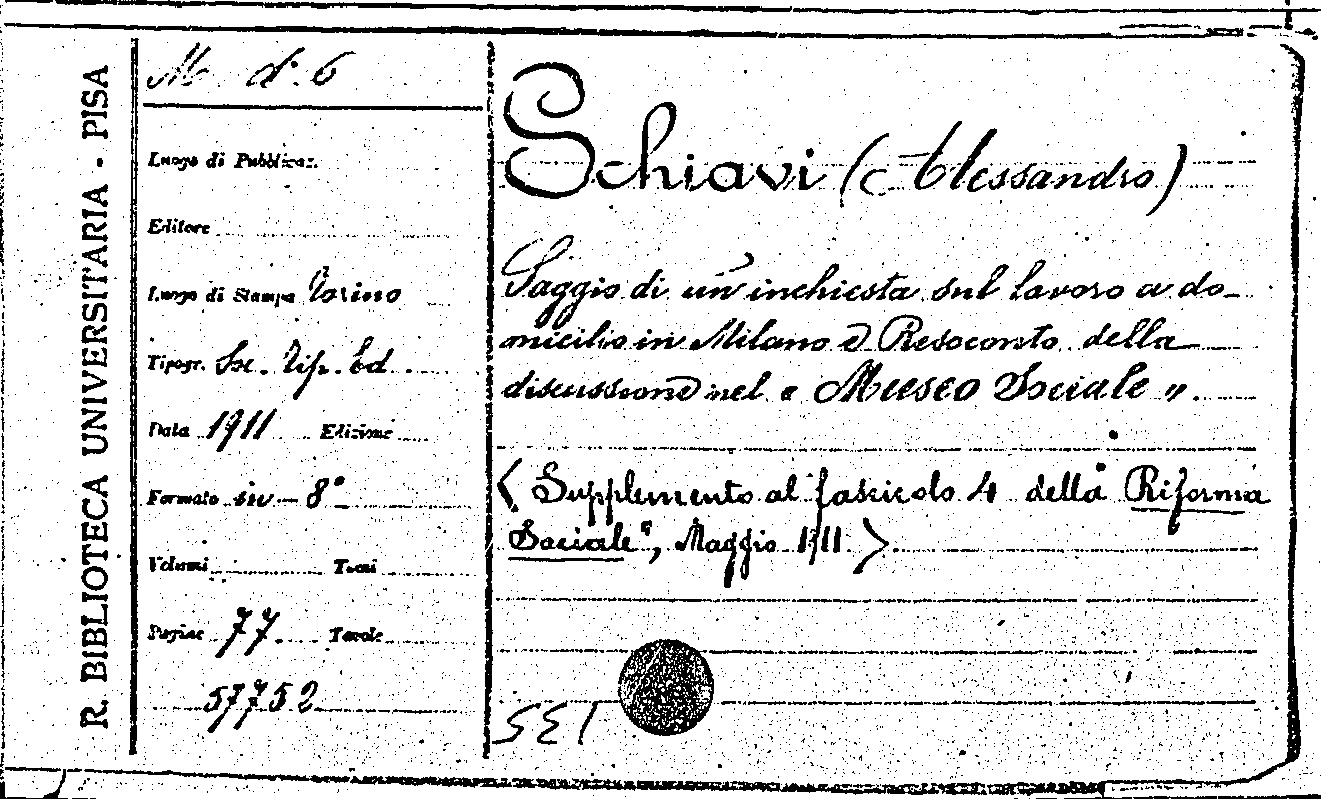 R. BIBLIOTECA UNIVERSITARIA - PISA
M d. 6
Luogo di Pubblicaz.
Editore
Luogo di Stampa Torino
Tipogr. Soc. Tip. Ed.
Data 1911 Edizione
Formato in-8°
Volumi Tomi
Pagine 77. Tavole
57752
Schiavi (Alessandro)
Saggio di un'inchiesta sul lavoro a do-
micilio in Milano e Resoconto della
discussione nel « Museo Sociale ».
(Supplemento al fascicolo 4 della "Riforma
Sociale", Maggio 1911)